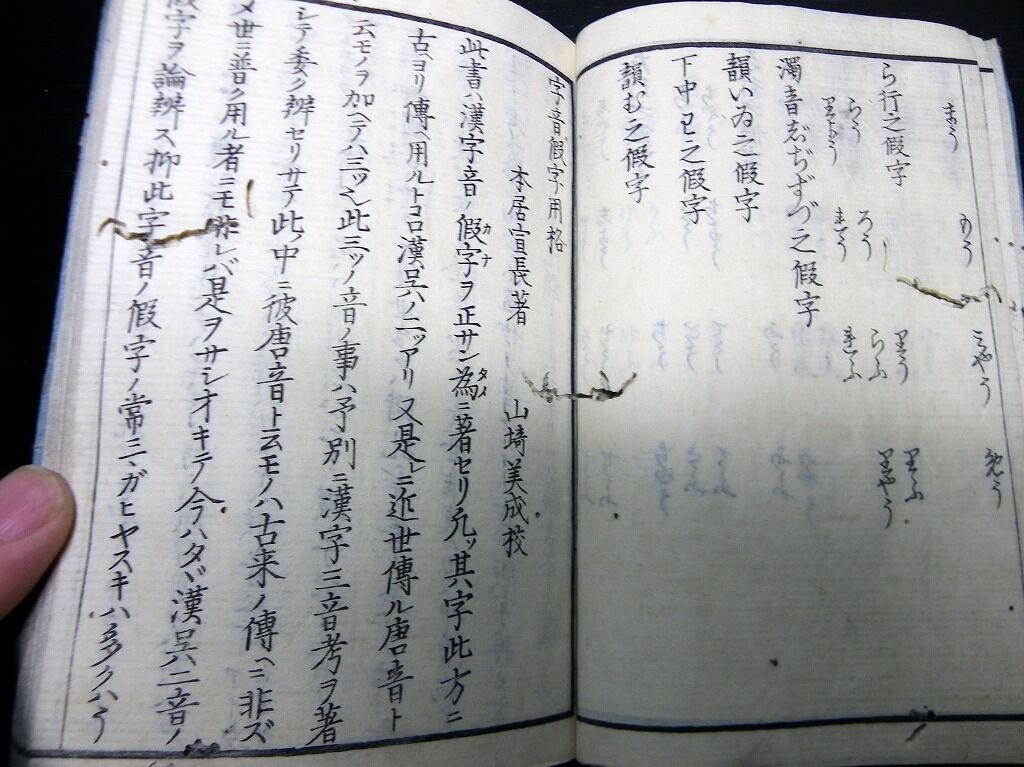 まう もう みやう めう
ら行之假字 りう りふ
らう ろう らふ りやう
りよう れう れふ
濁音じぢずづ之假字
韻いゐ之假字
下中わ之假字
韻む之假字
字音假字用格
本居宣長著 山﨑美成校
此書ハ漢字音ノ假字ヲ正サン為ニ著セリ凡ソ其字此方ニ
カナ タメ
古ヘヨリ傳ヘ用ルトコロ漢呉ノ二ツアリ又是レニ近世傳ル唐音ト
云モノヲ加ヘテハ三ツ也此三ツノ音ノ事ハ予別ニ漢字三音考ヲ著
シテ委ク辨セリサテ此ノ中ニ彼唐音ト云モノハ古来ノ傳ヘニ非ズ
メ世ニ普ク用ル者ニモ非レバ是ヲサシオキテ今ハタヾ漢呉二音ノ
假字ヲ論辨ス抑此字音ノ假字ノ常ニマガヒヤスキハ多クハう